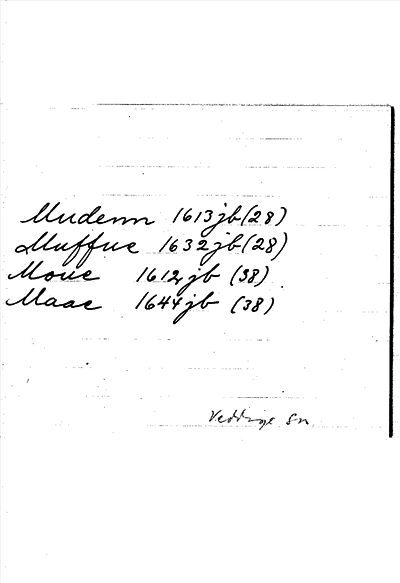 Mudenn 1613 jb (28)
Muffue 1632 jb (28)
Moue 1612 jb (38)
Maae 1644 jb (38)
Veddige sn